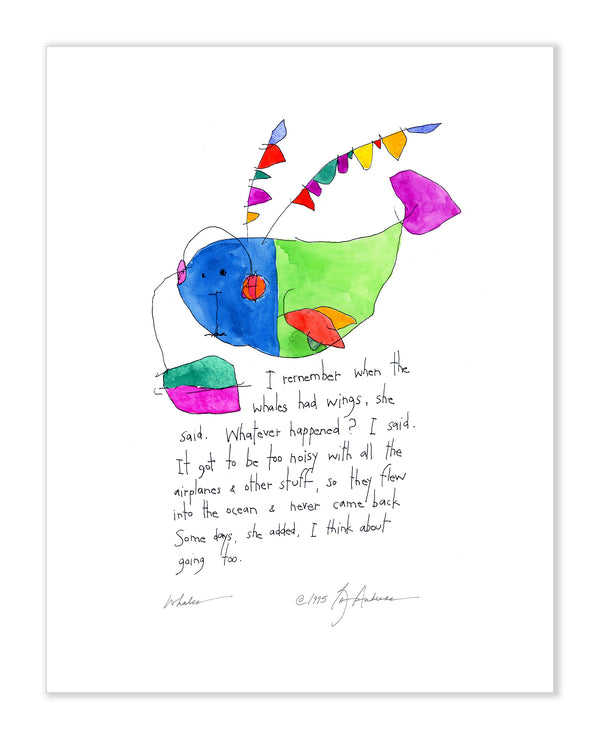 I remember when the
whales had wings, she
said. Whatever happened? I said.
It got to be too noisy with all the
airplanes & other stuff, so they flew
into the ocean & never came back
Some days, she added, I think about
going too.
Whales ©1995 Andreas